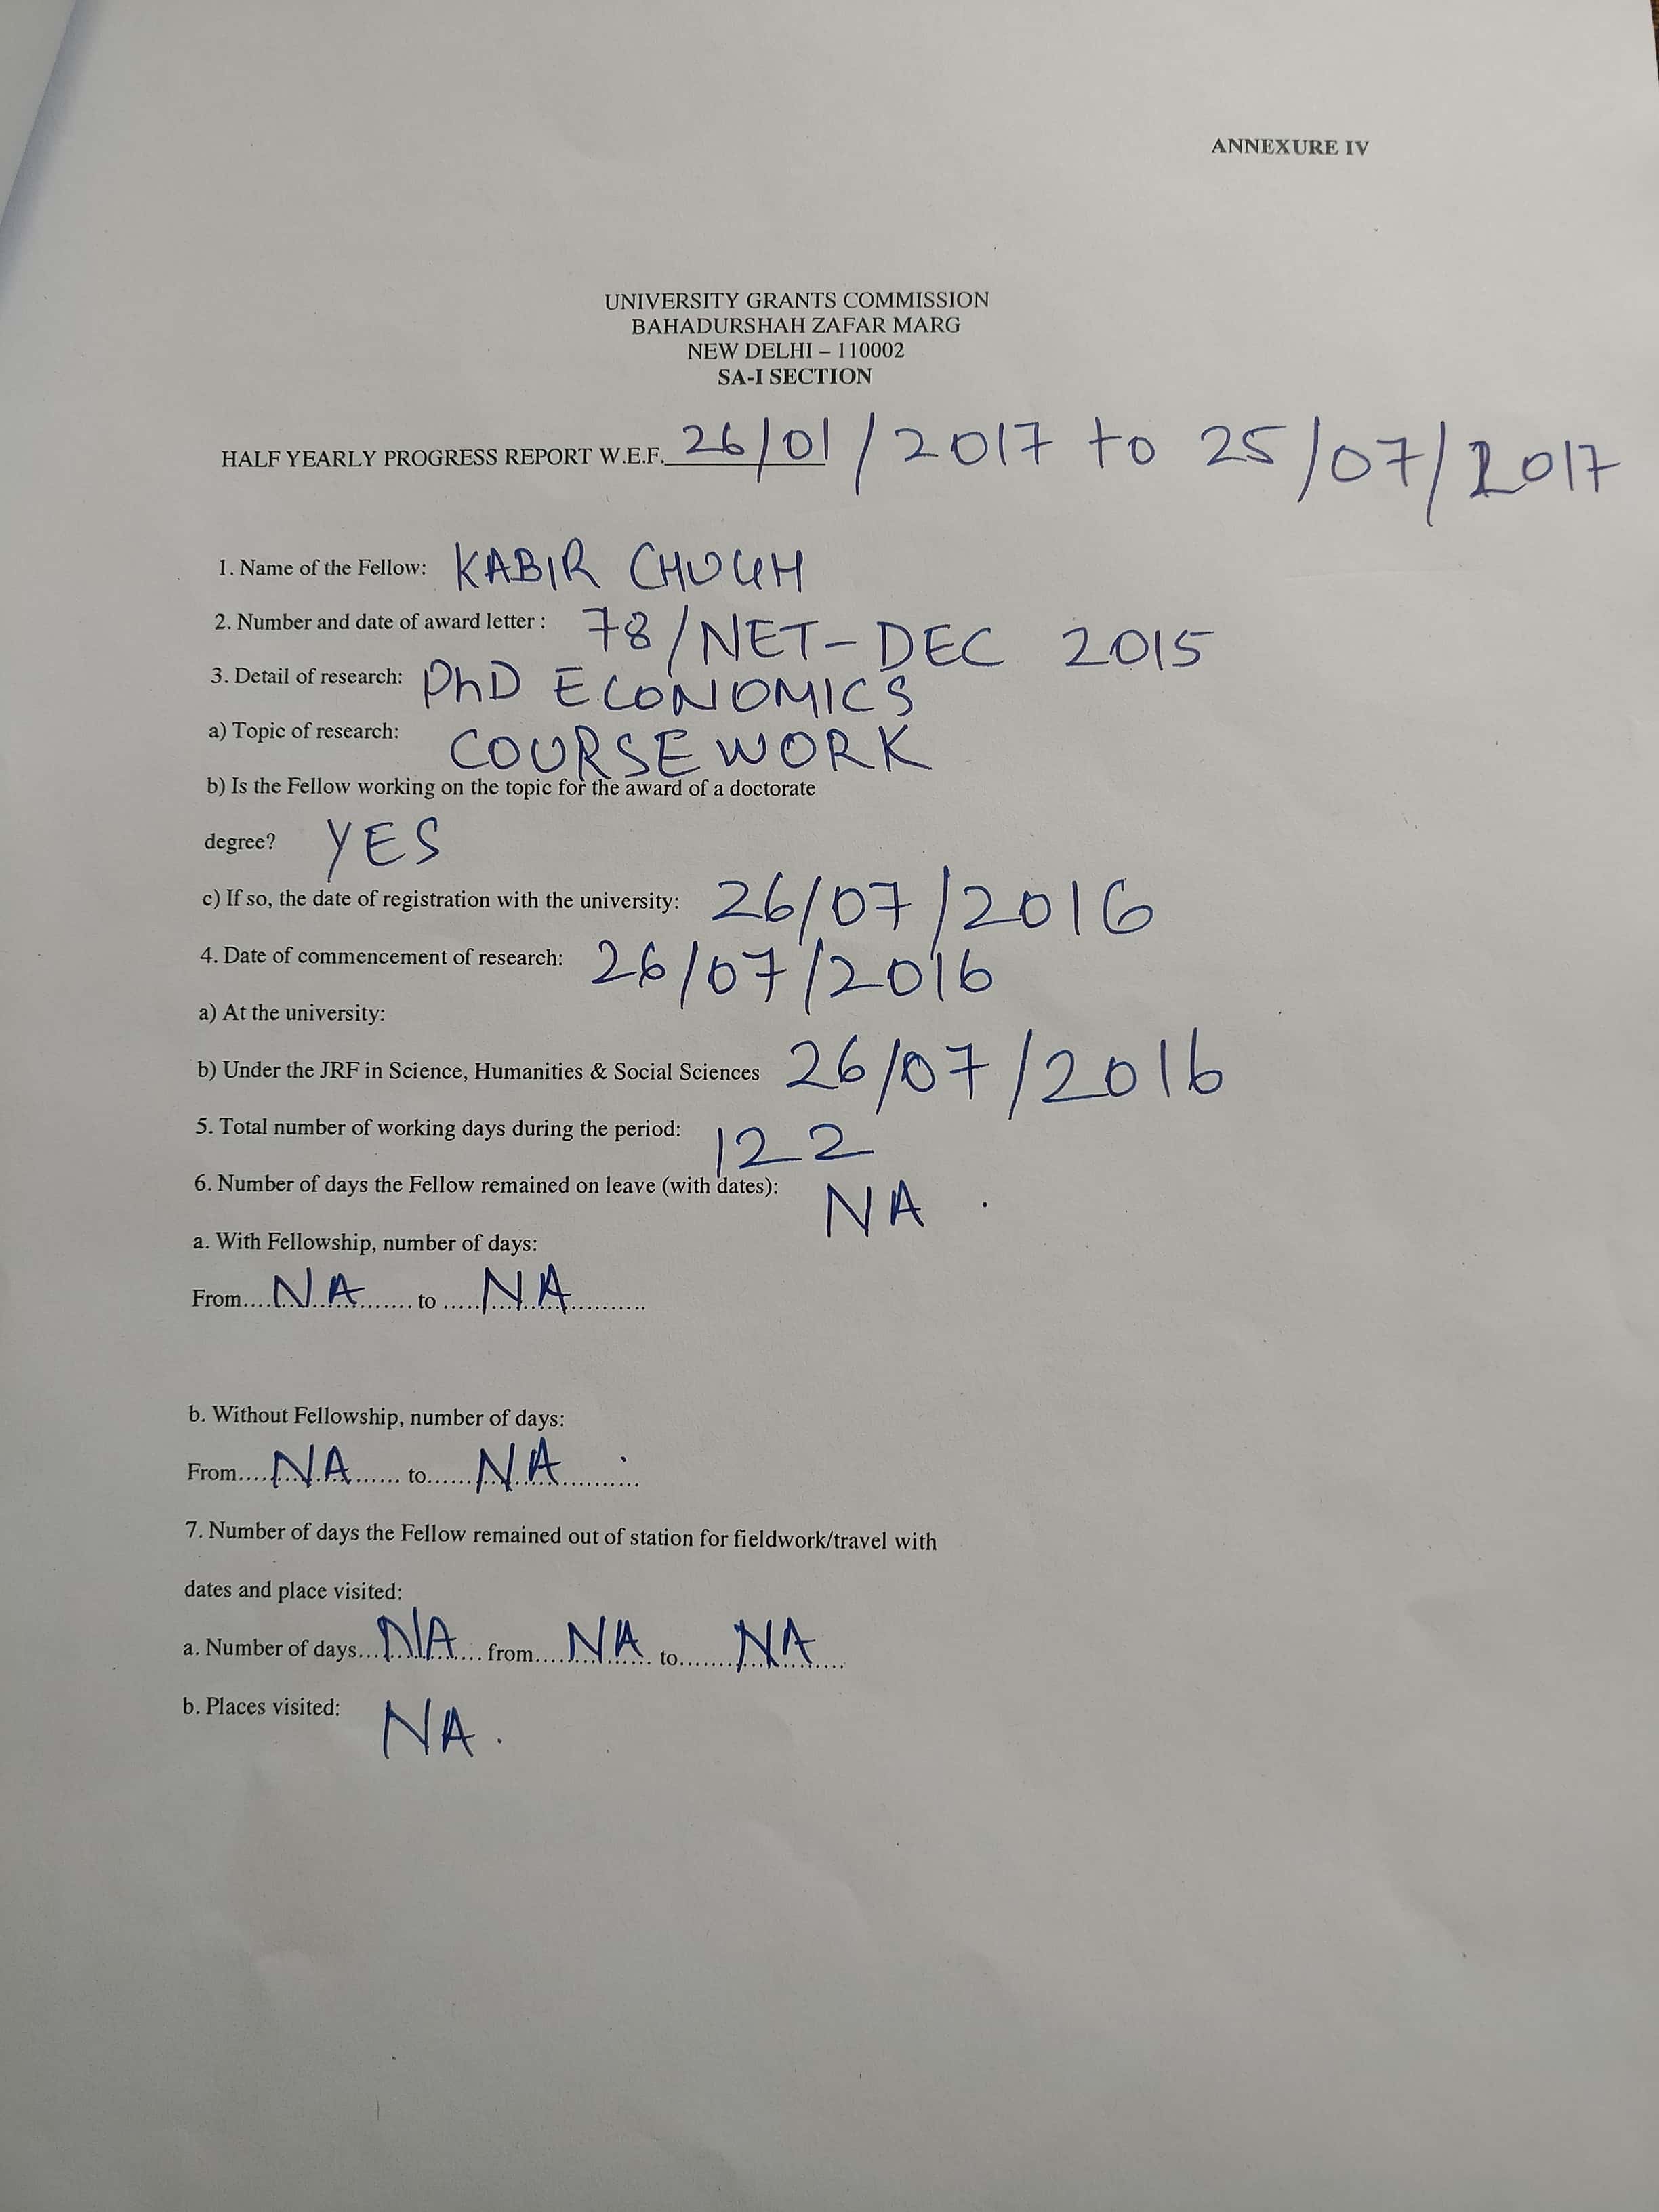 ANNEXURE IV
UNIVERSITY GRANTS COMMISSION
BAHADURSHAH ZAFAR MARG
NEW DELHI – 110002
SA-I SECTION
HALF YEARLY PROGRESS REPORT W.E.F. 26/01/2017 to 25/07/2017
1. Name of the Fellow: KABIR CHUGH
2. Number and date of award letter : 78/NET-DEC 2015
3. Detail of research: PhD ECONOMICS
a) Topic of research: COURSE WORK
b) Is the Fellow working on the topic for the award of a doctorate
degree? YES
c) If so, the date of registration with the university: 26/07/2016
4. Date of commencement of research: 26/07/2016
a) At the university:
b) Under the JRF in Science, Humanities & Social Sciences 26/07/2016
5. Total number of working days during the period: 122
6. Number of days the Fellow remained on leave (with dates): NA .
a. With Fellowship, number of days:
From....NA....... to .....NA..........
b. Without Fellowship, number of days:
From....NA...... to......NA..........
7. Number of days the Fellow remained out of station for fieldwork/travel with
dates and place visited:
a. Number of days...NA.... from....NA.... to.......NA....
b. Places visited: NA.